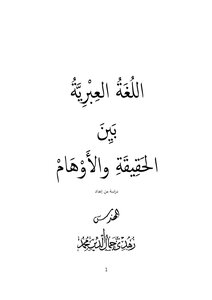 اللُّغَةُ العِبْرِيَّةُ
بَيْنَ
الحَقِيقَةِ والأَوْهَامْ
دراسة من إعداد
المهندس
زهدي جمال الدين محمد
1